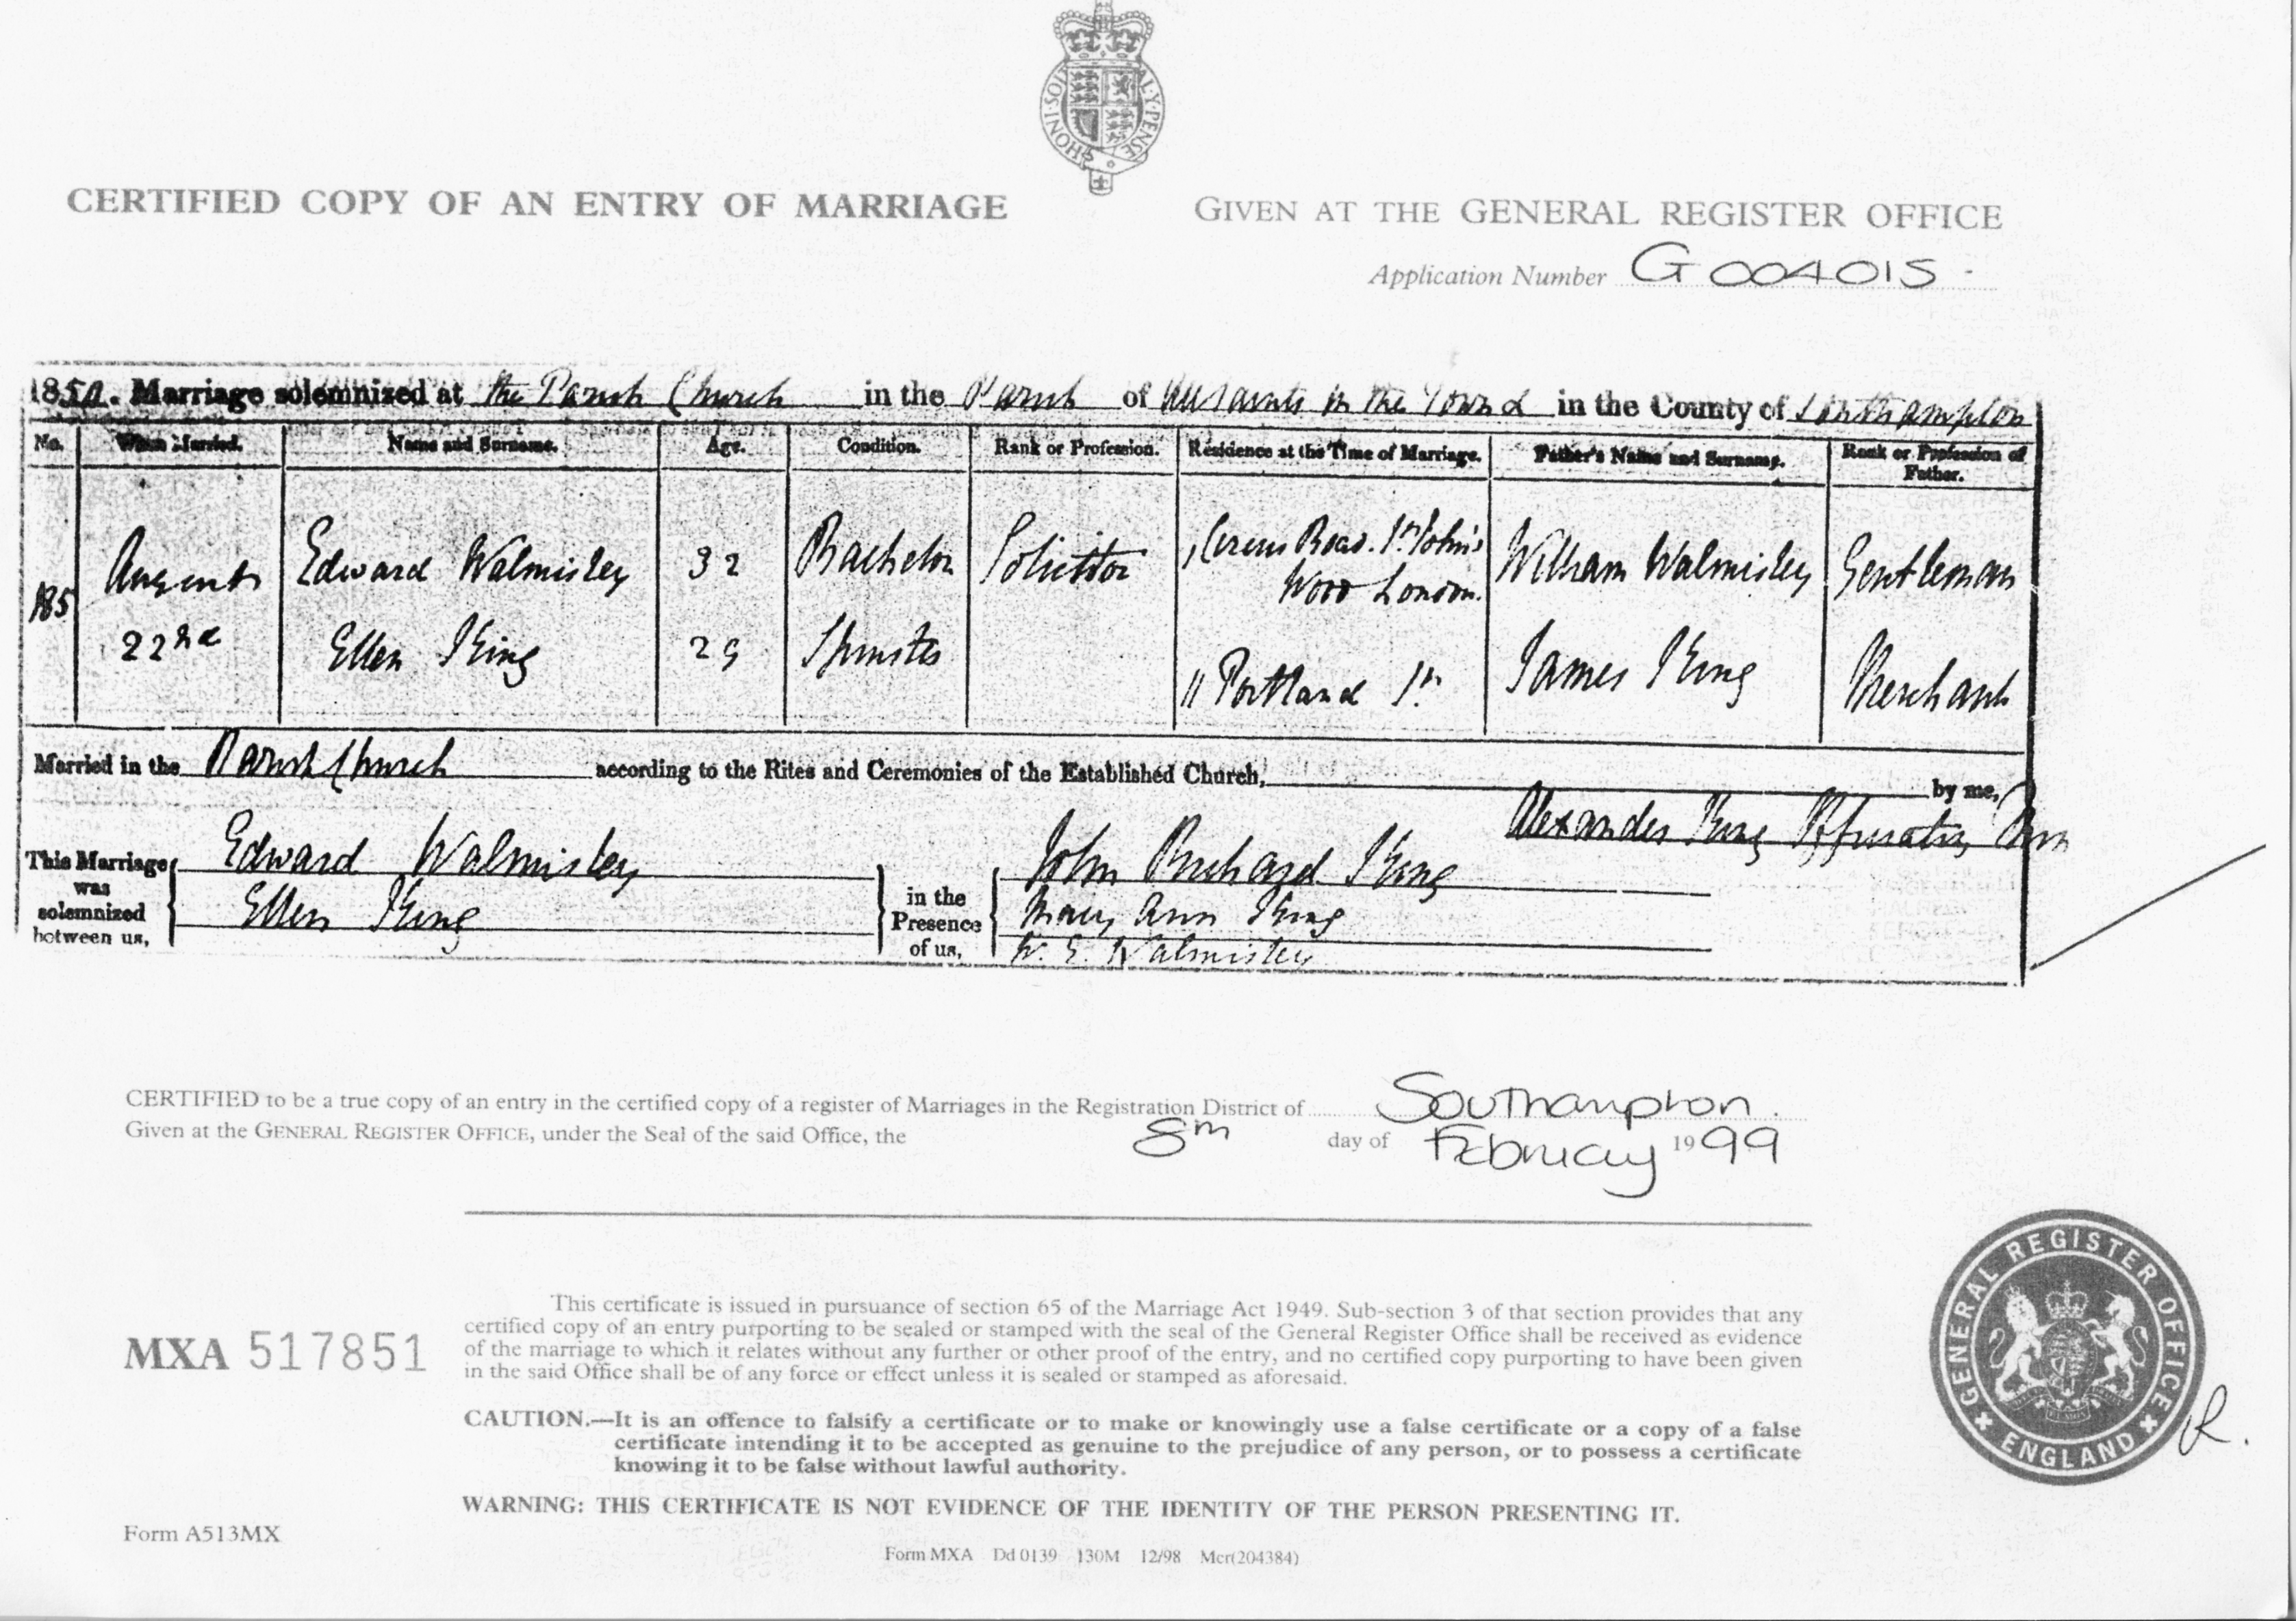 HONI·SOIT AL·Y·PENSE
CERTIFIED COPY OF AN ENTRY OF MARRIAGE
GIVEN AT THE GENERAL REGISTER OFFICE
Application Number G 004015
1850. Marriage solemnized at the Parish Church in the Parish of All Saints in the Town & in the County of Southampton
No. When Married. Name and Surname. Age. Condition. Rank or Profession. Residence at the Time of Marriage. Father's Name and Surname. Rank or Profession of Father.
185 August 22nd Edward Walmisley 32 Bachelor Solicitor Circus Road. St. John's Wood London. William Walmisley Gentleman
Ellen King 29 Spinster 11 Portland St. James King Merchant
Married in the Parish Church according to the Rites and Ceremonies of the Established Church, by me,
Alexander King Officiating
This Marriage was solemnized between us, Edward Walmisley
Ellen King
in the Presence of us, John Richard King
Mary Ann King
W. E. Walmisley
CERTIFIED to be a true copy of an entry in the certified copy of a register of Marriages in the Registration District of Southampton.
Given at the GENERAL REGISTER OFFICE, under the Seal of the said Office, the 8th day of February 1999
MXA 517851
This certificate is issued in pursuance of section 65 of the Marriage Act 1949. Sub-section 3 of that section provides that any
certified copy of an entry purporting to be sealed or stamped with the seal of the General Register Office shall be received as evidence
of the marriage to which it relates without any further or other proof of the entry, and no certified copy purporting to have been given
in the said Office shall be of any force or effect unless it is sealed or stamped as aforesaid.
CAUTION.—It is an offence to falsify a certificate or to make or knowingly use a false certificate or a copy of a false
certificate intending it to be accepted as genuine to the prejudice of any person, or to possess a certificate
knowing it to be false without lawful authority.
WARNING: THIS CERTIFICATE IS NOT EVIDENCE OF THE IDENTITY OF THE PERSON PRESENTING IT.
GENERAL REGISTER OFFICE ENGLAND
R.
Form A513MX
Form MXA Dd 0139 130M 12/98 Mcr(204384)